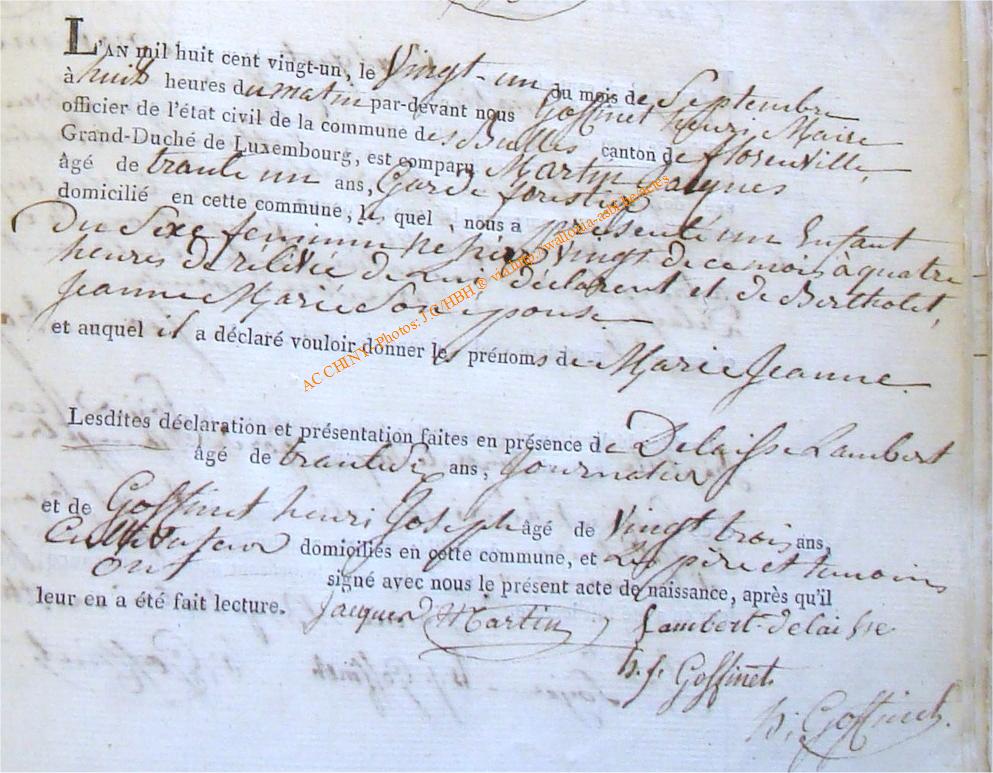 L'AN mil huit cent vingt-un, le Vingt-un du mois de Septembre
à huit heures du matin par-devant nous Goffinet henri Maire
officier de l'état civil de la commune des Bulles canton de florenville,
Grand-Duché de Luxembourg, est comparu Martin Jacques
âgé de trante un ans, Garde forestier
domicilié en cette commune, le quel nous a présenté un Enfant
Du Sexe feminin né hier vingt de ce mois à quatre
heures de relevée de Lui déclarent et de Bertholet,
Jeanne Marie Son épouse
et auquel il a déclaré vouloir donner les prénoms de Marie Jeanne
Lesdites déclaration et présentation faites en présence de Delaisse Lambert
âgé de trante ans, Journalier
et de Goffinet henri Joseph âgé de Vingt trois ans,
Cultivateur domiciliés en cette commune, et Les père et temoins
Ont signé avec nous le présent acte de naissance, après qu'il
leur en a été fait lecture. Jacques Martin Lambert-delaisse
h. j. Goffinet
h; Goffinet.
AC CHINY - Photos: J.G/HBH ® via http://wallonia-asbl.be/actes